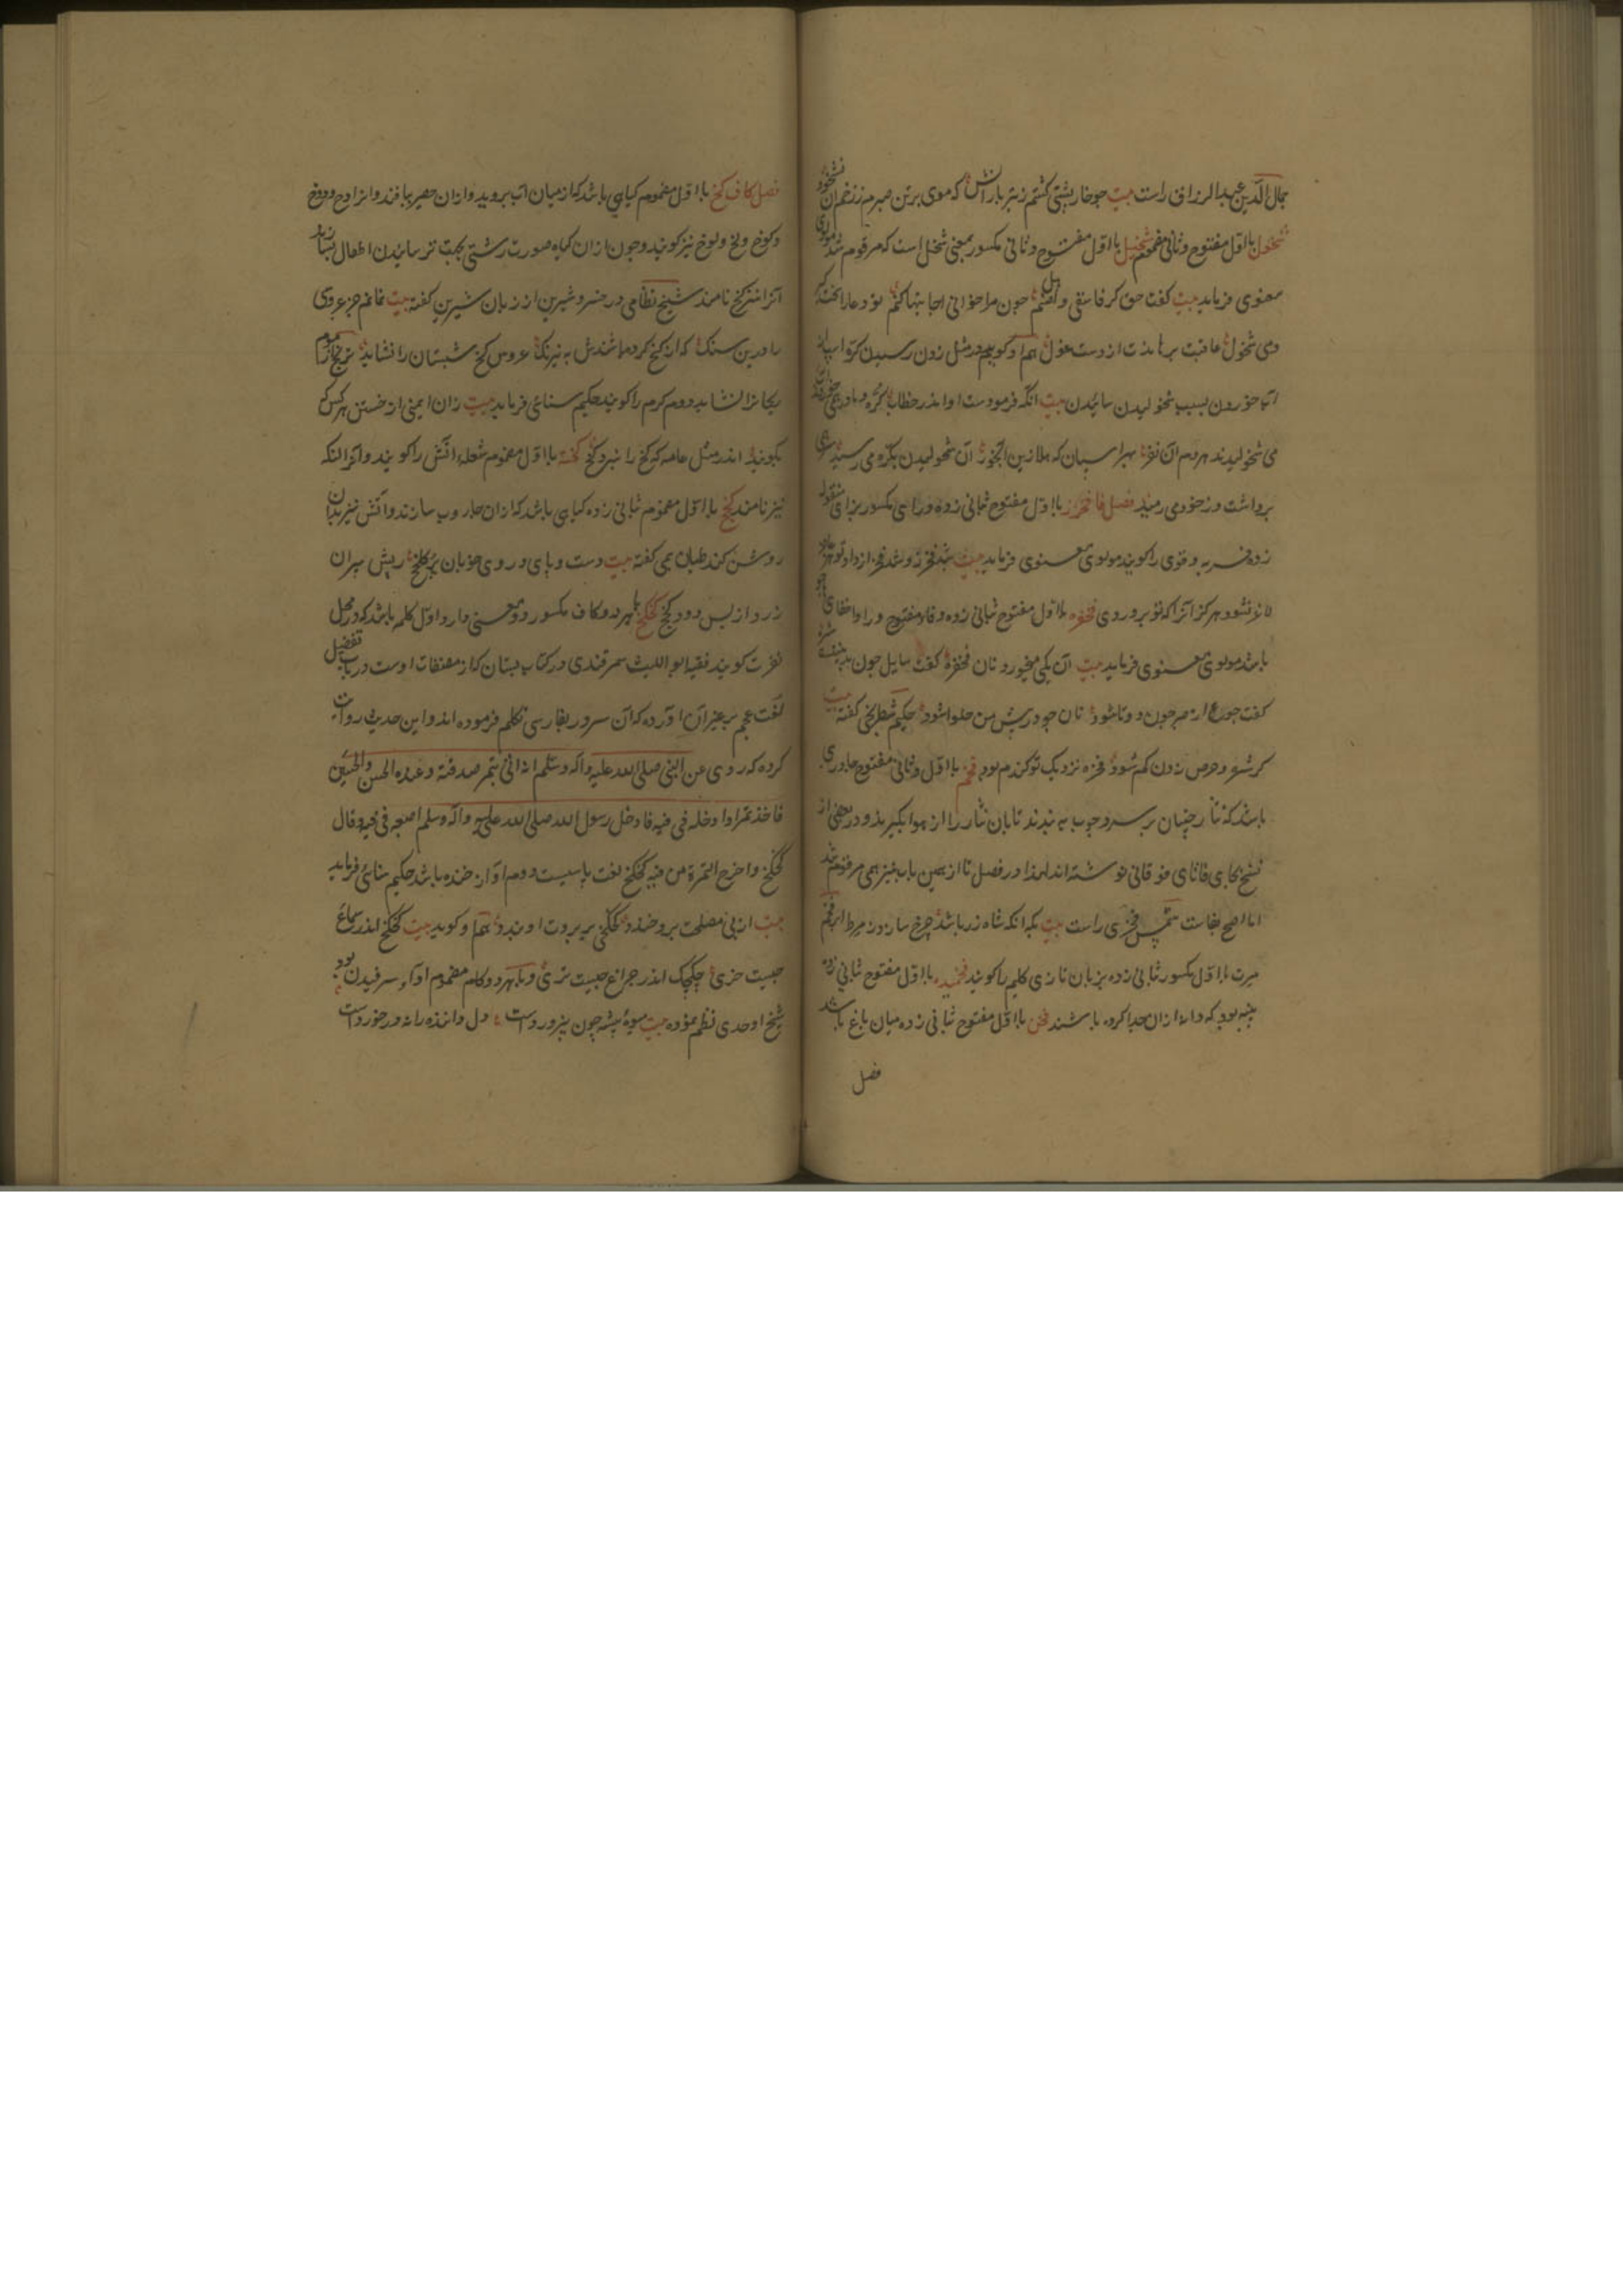 جمال الدین عبدالرزاق راست بیت جو خارپشتی کشتم ز تیر بارانش که موی برتن صبرم ز زخم آن شخود
شخول بااول مفتوح و ثانی مضموم شخیل بااول مفتوح و ثانی مکسور بمعنی شخل است که مرقوم شد مولوی
معنوی فرماید بیت کفت حق کر فاسقی و اهل صنم چون مرا خوانی اجابتها کنم تو دعا را سخت کیر
ومی شخول عاقبت برهاندت از دست غول هم او کوید در مثل زدن رسیدن کره اسپ از
آب خوردن بسبب شخولیدن سایسان بیت آنکه فرمودست او اندر خطاب کره و مادر همی خوردند آب
می شخولیدند هر دم آن نفر بهر اسپان که هلا هین آب خور آن شخولیدن بکره می رسید سر همی
برداشت و ز خود می رمید فصل فا فخرز بااول مفتوح بثانی زده و رای مکسور بزای منقوطه
زده فربه و قوی را کویند مولوی معنوی فرماید بیت
لاغر نشود هرکز آنرا که تو پروردی فخفره بااول مفتوح بثانی زده و فاء مفتوح و را و اخفای ها
باشد مولوی معنوی فرماید بیت آن یکی میخورد نان فخفره کفت سایل چون بدینست شره
کفت جوع از صبر چون دوتا شود نان جو در پیش من حلوا شود حکیم کفته بیت
کر شره و حرص زدن کم شود فخفره نزدیک تو کندم بود فخم بااول و ثانی مفتوح چادری
باشد که نثار چینان بر سر دو چوب به بندند تا بان نثار را از هوا بکیرند و در بعضی از
نسخ بجای فا تای فوقانی نوشته اند لهذا در فصل تا از همین باب نیز همی مرقوم شد
اما اصح بفاست شمس فخری راست بیت بکه آنکه شاه زر باشد چرخ سازد ز مرط ابر فخم
مرت بااول مکسور بثانی زده بزبان تازی کلیم را کویند فخمیده بااول مفتوح بثانی زده
پنبه بود که دانه ازان جدا کرده باشند فخن بااول مفتوح بثانی زده میان باغ باشد
فصل
فصل کاف کخ بااول مضموم کیاهی باشد که از میان آب بروید و ازان حصیر بافند و انرا دوخ و روخ
و کوخ و لخ و لوخ نیز کویند و چون ازان کیاه صورت زشتی بجهت ترسانیدن اطفال بسازند
آنرا نیز کخ نامند شیخ نظامی در خسرو شیرین از زبان شیرین کفته بیت نمانم جز عروسی
را درین سنک که از کخ کرده باشندش به نیرنک عروس کخ شبستان را نشاید ترنج موم
ریحانرا نشاید دوم کرم را کویند حکیم سنائی فرماید بیت زان ایمنی از خستن هر کس که
بکویند اندر مثل عامه که کخ را نبرد کخ کخته بااول مضموم شعله آتش را کویند و آنرا لنکه
نیز نامند کخج بااول مضموم بثانی زده کیاهی باشد که ازان جاروب سازند و آتش نیز بدان
روشن کنند طیان بمی کفته بیت دست و پای و روی خوبان پر کلخج ریش پیران
زرد از بس دود کخج کخکخ بهر دو کاف مکسور دو معنی دارد اول کلمه باشد که در محل
نفرت کویند فقیه ابو اللیث سمرقندی در کتاب بستان که از مصنفات اوست در باب تفضیل
لغت عجم بر غیر آن آورده که آن سرور بفارسی تکلم فرموده اند و این حدیث روایت
کرده که روی عن النبی صلی الله علیه و آله وسلم انه اتی بتمر صدقة و عنده الحسن والحسین
فاخذ تمرا وادخله فی فیه فادخل رسول الله صلی الله علیه وآله وسلم اصبعه فی فیه و قال
کخکخ واخرج التمرة من فیه کخکخ لغت پارسیست دوم آواز خنده باشد حکیم سنائی فرماید
بیت از پی مصلحت برو خندد کخکخی بر بروت او بندد هم او کوید بیت کخکخ اندر سماع
چیست خری چکچک اندر چراغ چیست تری و بهر دو کاف مضموم آواز سرفیدن بود
شیخ اوحدی نظم نموده بیت میوه پیشه چون پیزور داشت دل داننده را نه در خورداست